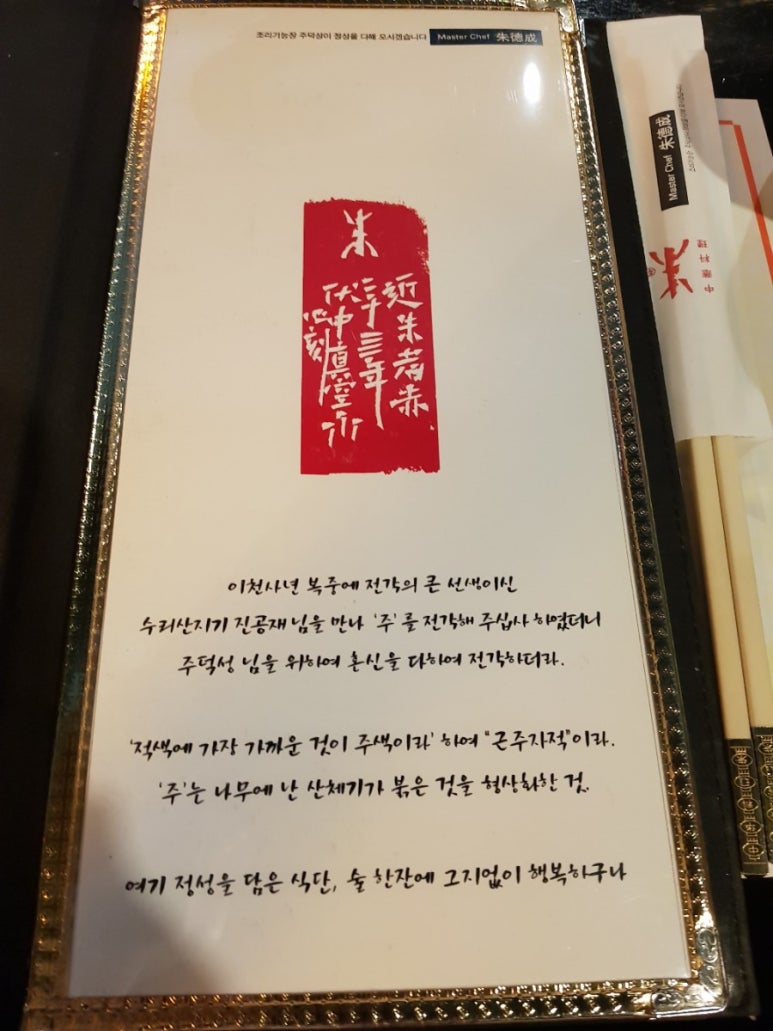 조리기능장 주덕성이 정성을 다해 모시겠습니다 Master Chef 朱德成
朱
近朱者赤
伏中眞空
心刻
이천사년 복중에 전각의 큰 선생이신
수리산지기 진공재 님을 만나 '주'를 전각해 주십사 하였더니
주덕성 님을 위하여 혼신을 다하여 전각하더라.
'적색에 가장 가까운 것이 주색이라' 하여 "근주자적"이라.
'주'는 나무에 난 산체기가 붉은 것을 형상화한 것.
여기 정성을 담은 식단, 술 한잔에 그지없이 행복하구나
Master Chef 朱德成
朱
中華料理